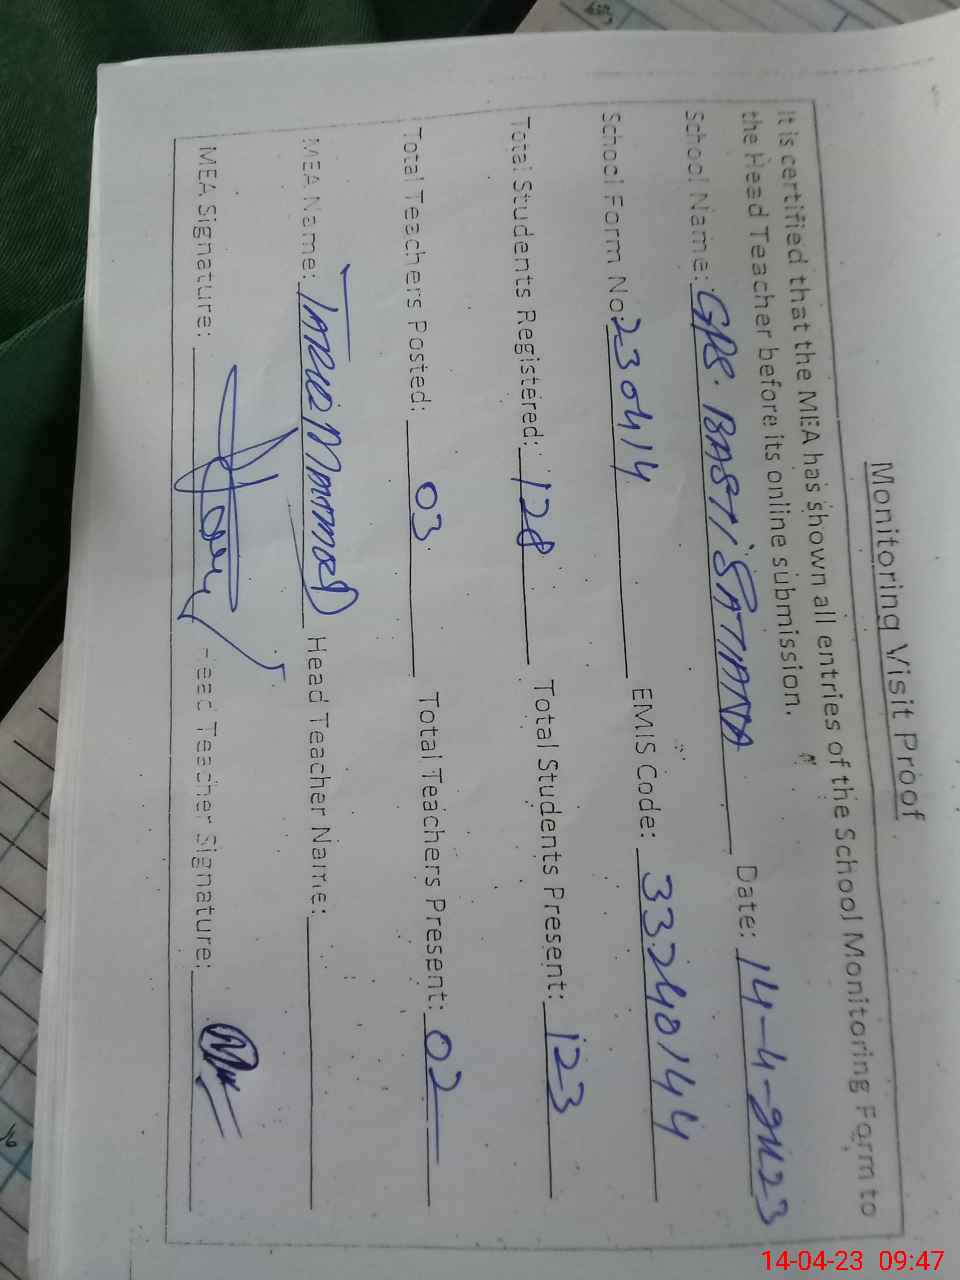 Monitoring Visit Proof
It is certified that the MEA has shown all entries of the School Monitoring Form to
the Head Teacher before its online submission.
School Name: GPS. BASTI SATIANA Date: 14-4-2023
School Form No: 230414 EMIS Code: 33240144
Total Students Registered: 128 Total Students Present: 123
Total Teachers Posted: 03 Total Teachers Present: 02
MEA Name: Head Teacher Name:
MEA Signature: Head Teacher Signature:
14-04-23 09:47